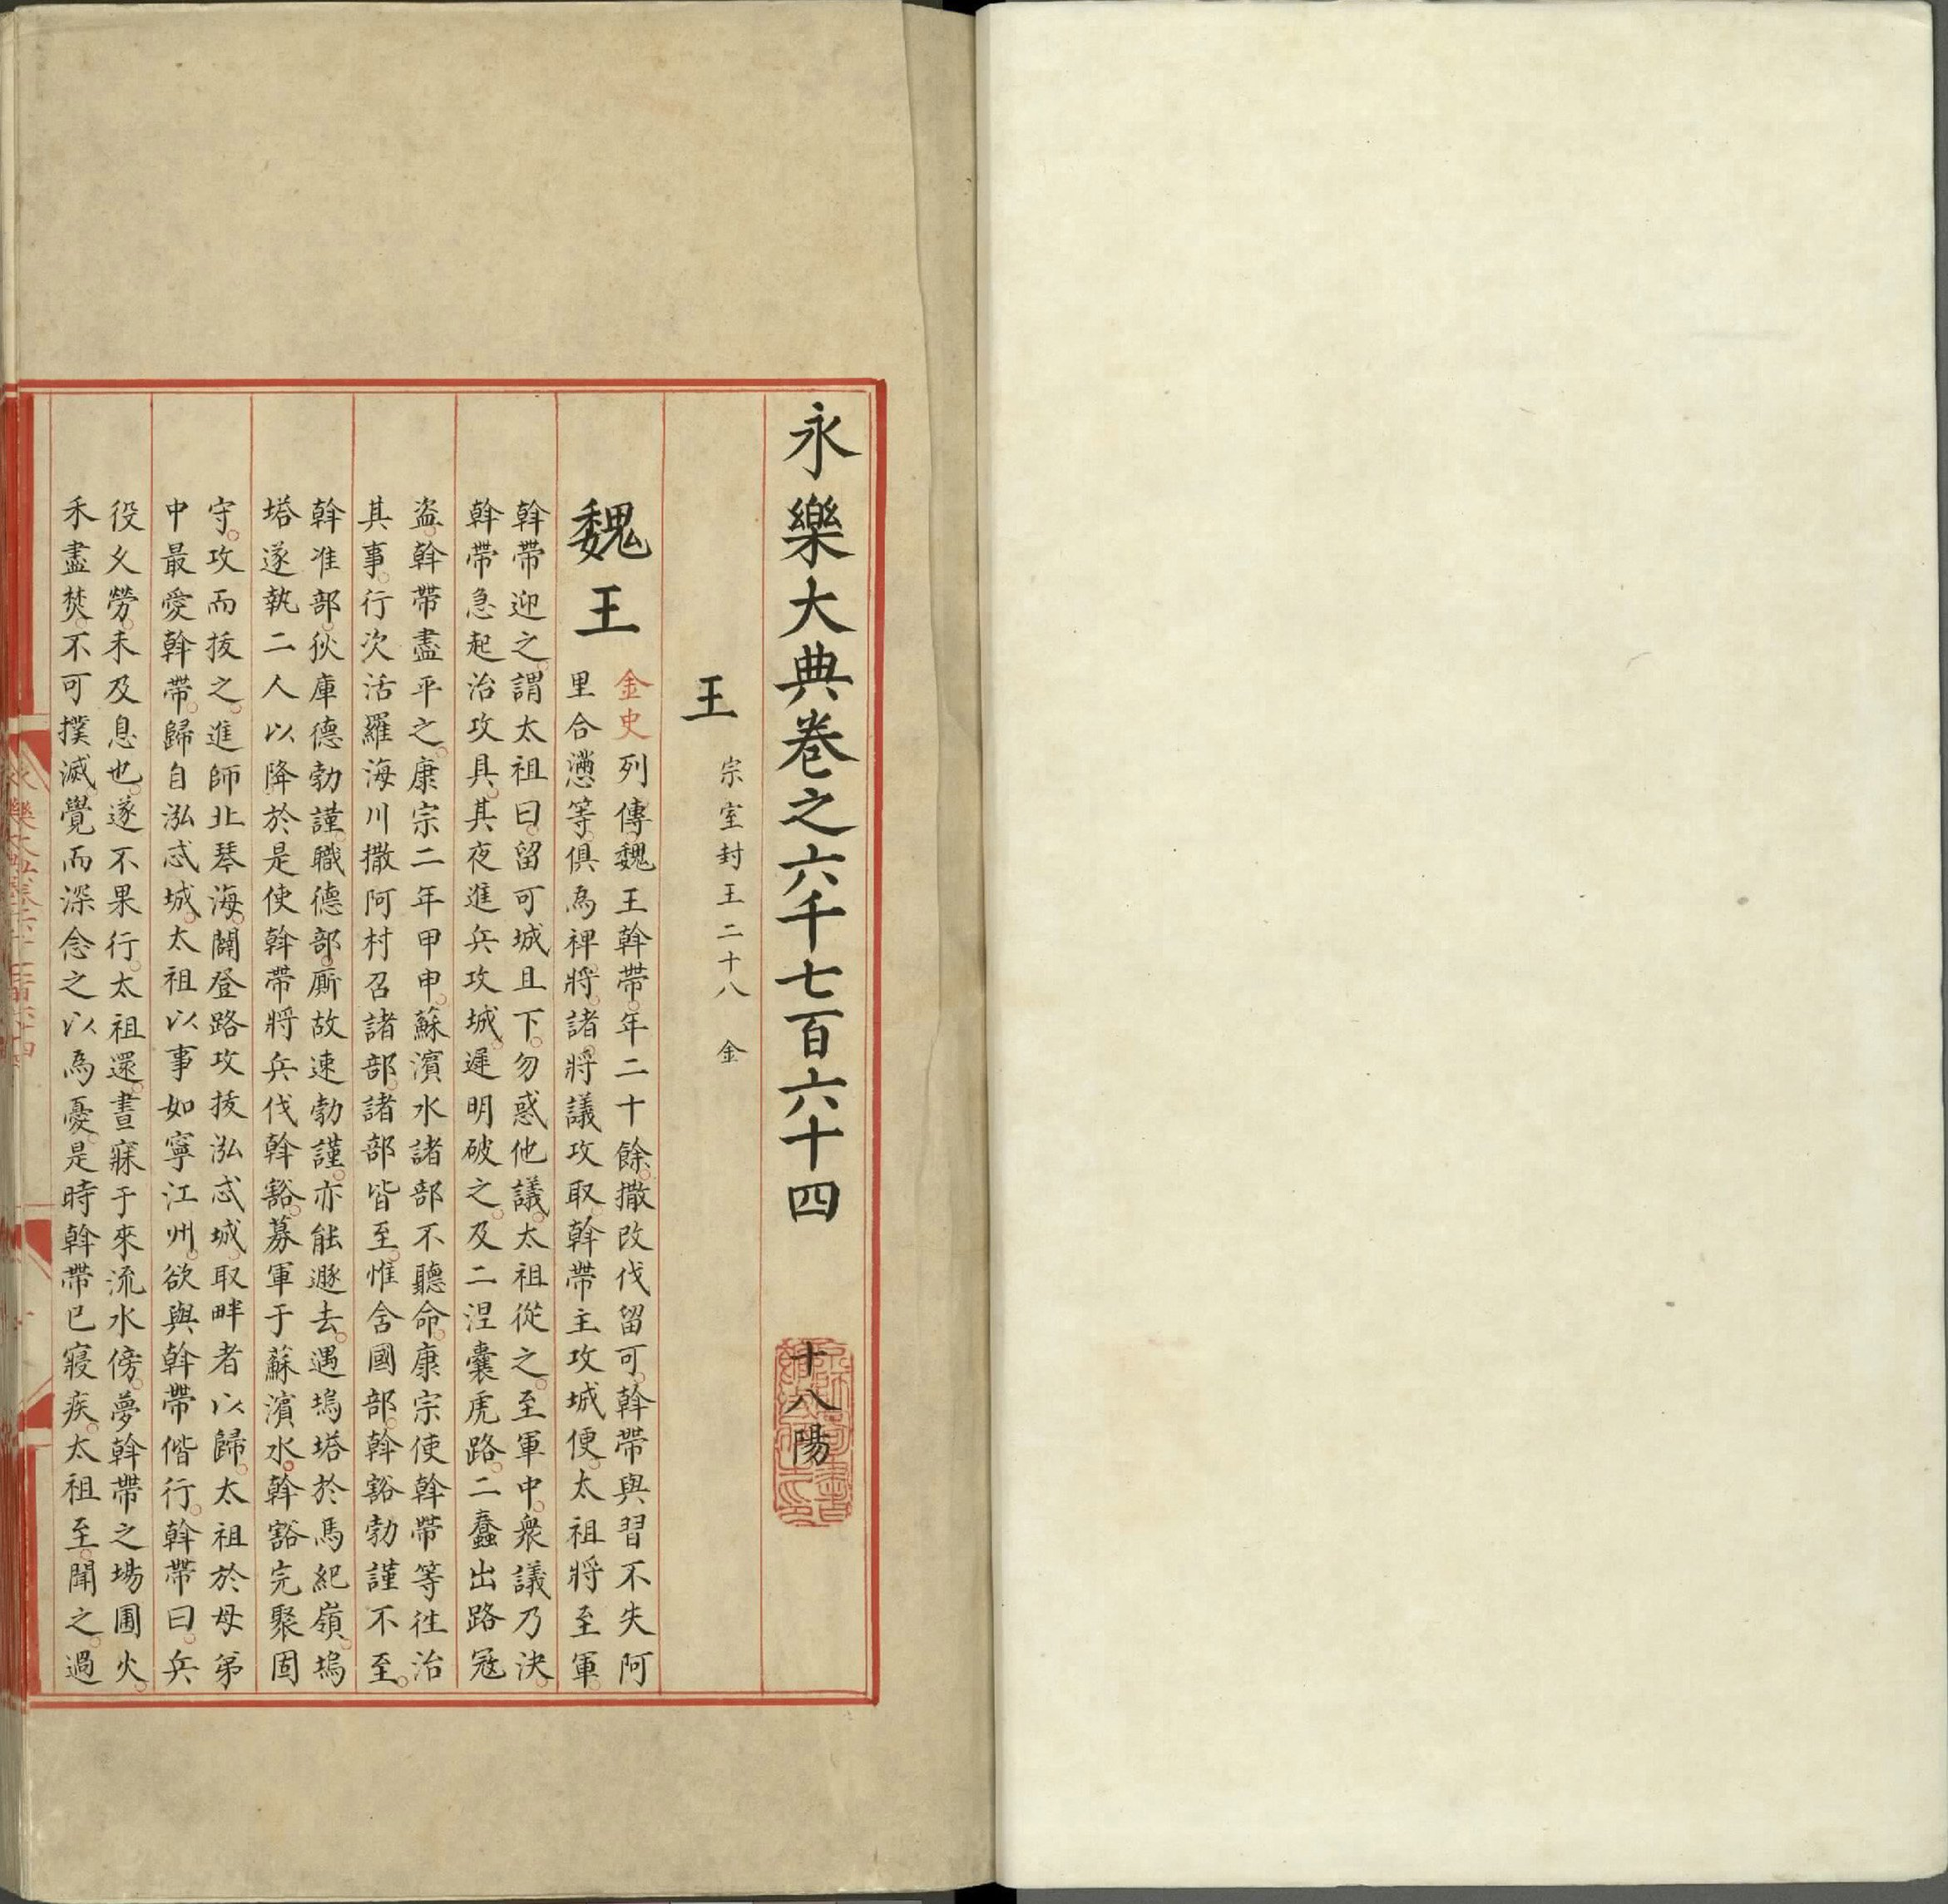 永樂大典卷之六千七百六十四 十八陽
王 宗室封王二十八 金
魏王 金史列傳魏王斡帶年二十餘撒改伐留可斡帶與習不失阿
里合懣等俱為裨將諸將議攻取斡帶主攻城便太祖將至軍
斡帶迎之謂太祖曰留可城且下勿惑他議太祖從之至軍中衆議乃決
斡帶急起治攻具其夜進兵攻城遲明破之及二涅囊虎路二蠢出路寇
盗斡帶盡平之康宗二年甲申蘇濱水諸部不聽命康宗使斡帶等徃治
其事行次活羅海川撒阿村召諸部諸部皆至惟舍國部斡豁勃謹不至
斡准部狄庫德勃謹職德部厮故速勃謹亦能遯去遇塢塔於馬紀嶺塢
塔遂執二人以降於是使斡帶將兵伐斡豁募軍于蘇濱水斡豁完聚固
守攻而拔之進師北琴海闢登路攻拔泓忒城取畔者以歸太祖於母弟
中最愛斡帶歸自泓忒城太祖以事如寧江州欲與斡帶偕行斡帶曰兵
役乆勞未及息也遂不果行太祖還晝寐于來流水傍夢斡帶之場圃火
禾盡焚不可撲滅覺而深念之以為憂是時斡帶已寢疾太祖至聞之過